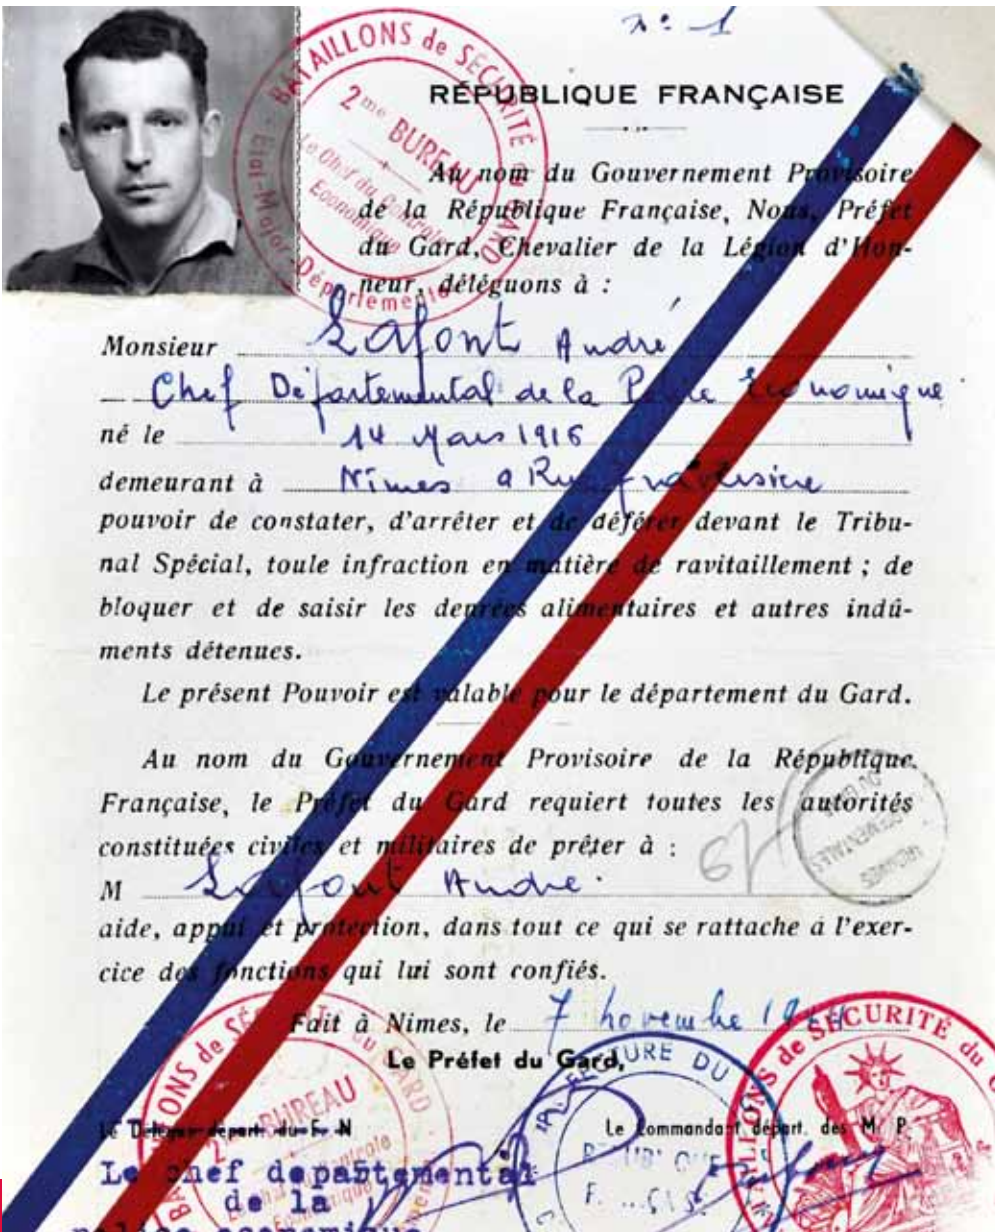 N° 1
BATAILLONS de SÉCURITÉ du GARD
Etat-Major Départemental
2me BUREAU
Le Chef du Contrôle
Economique
RÉPUBLIQUE FRANÇAISE
Au nom du Gouvernement Provisoire
de la République Française, Nous, Préfet
du Gard, Chevalier de la Légion d'Hon-
neur, déléguons à :
Monsieur Lafont André
Chef Départemental de la Police Économique
né le 14 Mars 1916
demeurant à Nîmes 9 Rue
pouvoir de constater, d'arrêter et de déférer devant le Tribu-
nal Spécial, toule infraction en matière de ravitaillement ; de
bloquer et de saisir les denrées alimentaires et autres indû-
ments détenues.
Le présent Pouvoir est valable pour le département du Gard.
Au nom du Gouvernement Provisoire de la République
Française, le Préfet du Gard requiert toutes les autorités
constituées civiles et militaires de prêter à :
M Lafont André.
aide, appui et protection, dans tout ce qui se rattache à l'exer-
cice des fonctions qui lui sont confiés.
Fait à Nimes, le 7 novembre 1944
Le Préfet du Gard,
Le Délégué départ. du F. N
Le Commandant départ. des M. P.
Le chef departemental
de la
police economique
BUREAU
SÉCURITÉ du